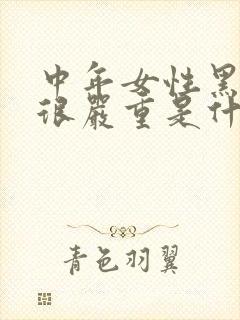 中年女性黑
很嚴重是什
青色羽翼